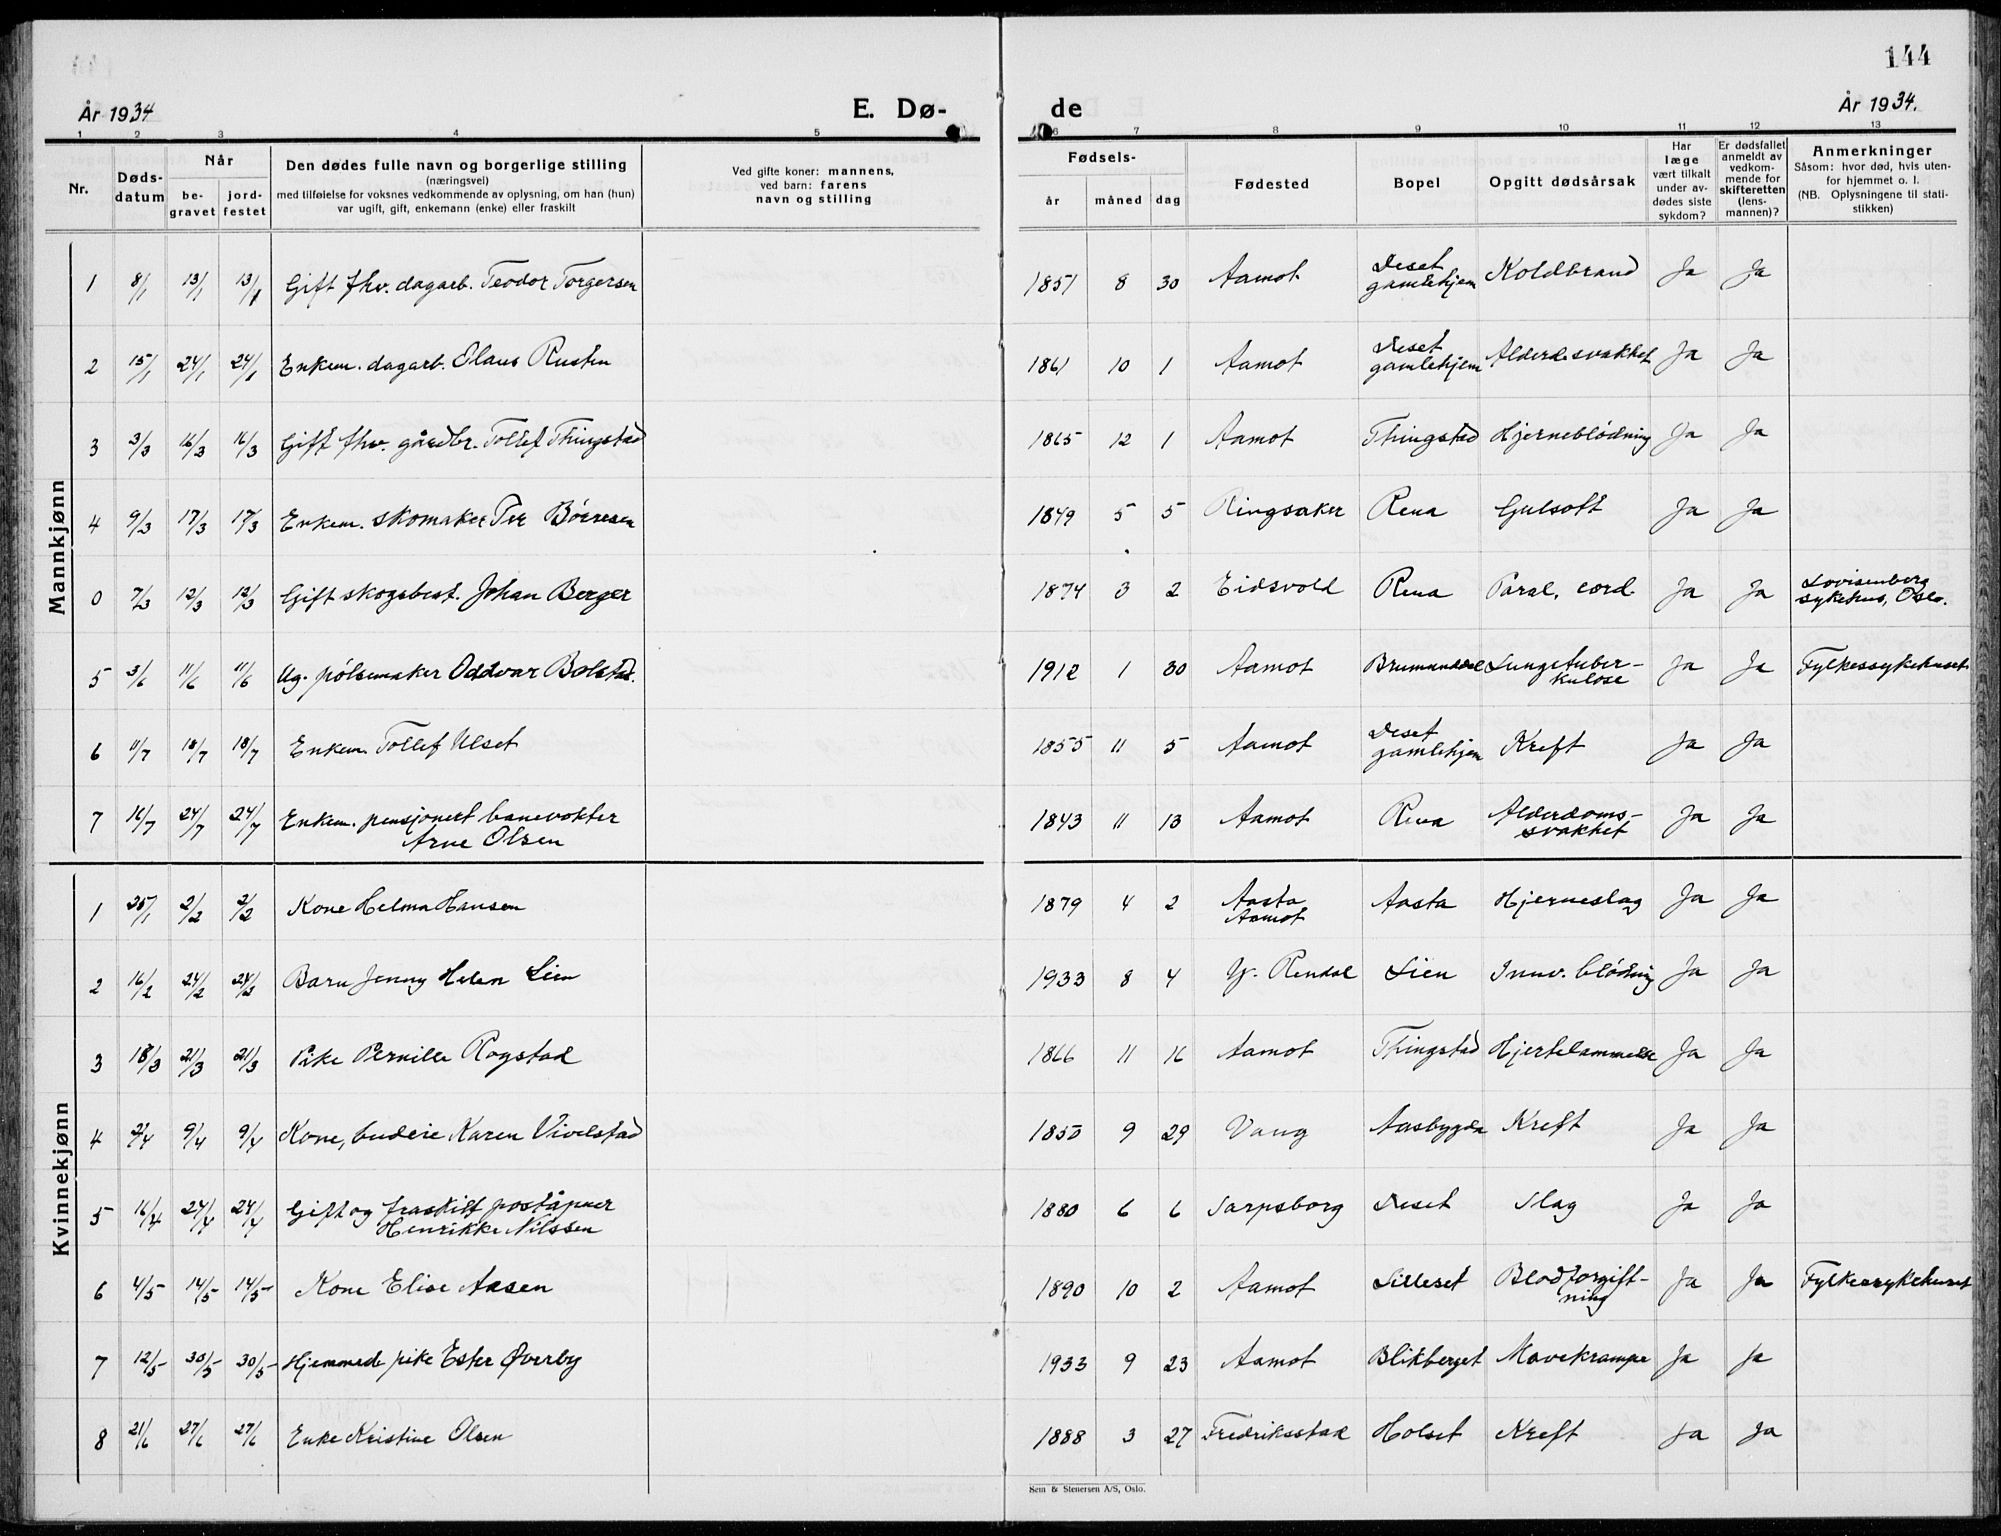 144
År 1934
E. Dø-
de
År 1934.
1 2 3 4 5 6 7 8 9 10 11 12 13
Nr.
Døds-
datum
Når
be-
gravet
jord-
festet
Den dødes fulle navn og borgerlige stilling
(næringsvei)
med tilføielse for voksnes vedkommende av oplysning, om han (hun)
var ugift, gift, enkemann (enke) eller fraskilt
Ved gifte koner: mannens,
ved barn: farens
navn og stilling
Fødsels-
år måned dag
Fødested
Bopel
Opgitt dødsårsak
Har
læge
vært tilkalt
under av-
dødes siste
sykdom?
Er dødsfallet
anmeldt av
vedkom-
mende for
skifteretten
(lens-
mannen)?
Anmerkninger
Såsom: hvor død, hvis uten-
for hjemmet o. l.
(NB. Oplysningene til stati-
stikken)
Mannkjønn
1 8/1 13/1 13/1 Gift fhv. dagarb. Teodor Torgersen 1851 8 30 Aamot Deset gamlehjem Koldbrand Ja Ja
2 15/1 24/1 24/1 Enkem. dagarb. Olaus Rusten 1861 10 1 Aamot Deset gamlehjem Alderdesvakhet Ja Ja
3 3/3 16/3 16/3 Gift fhv. gårdbr. Tollef Thingstad 1865 12 1 Aamot Thingstad Hjerneblödning Ja Ja
4 9/3 17/3 17/3 Enkem. skomaker Per Börresen 1849 5 5 Ringsaker Rena Gulsott Ja Ja
0 7/3 12/3 12/3 Gift skogsbest. Johan Berger 1874 3 2 Eidsvold Rena Paral. cord. Ja Ja Lovisenberg sykehus, Oslo.
5 3/6 11/6 11/6 Ug. pölsemaker Oddvar Bolstad. 1912 1 30 Aamot Brumunddal Lungetuber-
kulose Ja Ja Fylkessykehuset
6 11/7 18/7 18/7 Enkem. Tollef Ulset 1855 11 5 Aamot Deset gamlehjem Kreft Ja Ja
7 16/7 24/7 24/7 Enkem. pensjonert banevokter
Arne Olsen 1843 11 13 Aamot Rena Alderdoms-
svakhet Ja Ja
Kvinnekjønn
1 25/1 2/2 2/2 Kone Helma Hansen 1879 4 2 Aasta Aamot Aasta Hjerneslag Ja Ja
2 16/2 24/2 24/2 Barn Jenny Helen Lien 1933 8 4 Y. Rendal Lien Innv. blödning Ja Ja
3 18/3 21/3 21/3 Pike Pernille Rogstad 1866 11 16 Aamot Thingstad Hjertelammelse Ja Ja
4 2/4 9/4 9/4 Kone, budeie Karen Vivelstad 1850 9 29 Vang Aasbygda Kreft Ja Ja
5 16/4 24/4 24/4 Gift og fraskilt poståpner
Henrikke Nilssen 1880 6 6 Sarpsborg Deset Slag Ja Ja
6 4/5 14/5 14/5 Kone Elise Aasen 1890 10 2 Aamot Lilleset Blodforgift-
ning Ja Ja Fylkessykehuset
7 12/5 30/5 30/5 Hjemmed. pike Ester Øverby 1933 9 23 Aamot Blikberget Mavekramper Ja Ja
8 21/6 27/6 27/6 Enke Kristine Olsen 1888 3 27 Fredriksstad Holset Kreft Ja Ja
Sem & Stenersen A/S, Oslo.